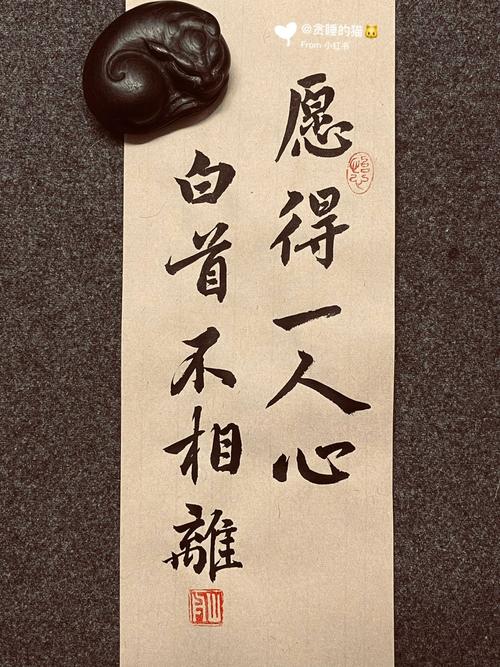 @贪睡的猫🐱
From 小红书
愿得一人心
白首不相離